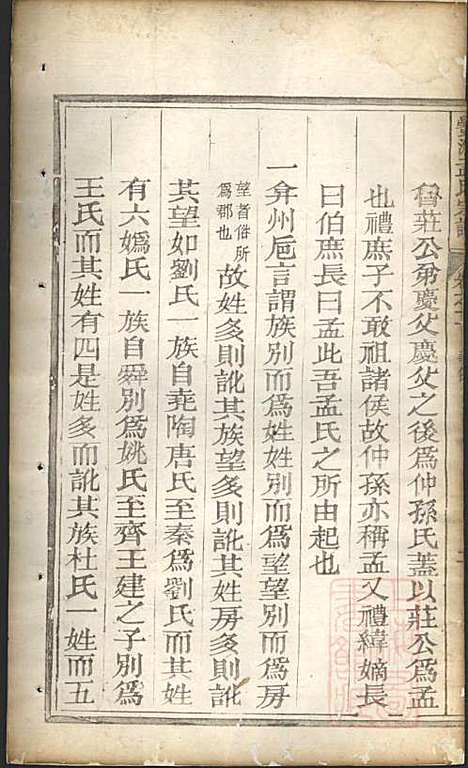 魯莊公弟慶父慶父之後爲仲孫氏蓋以莊公爲孟
也禮庶子不敢祖諸侯故仲孫亦稱孟又禮緯嫡長
曰伯庶長曰孟此吾孟氏之所由起也
一弇州巵言謂族別而爲姓姓別而爲望望別而爲房
望者俗所
爲郡也
故姓多則訛其族望多則訛其姓房多則訛
其望如劉氏一族自堯陶唐氏至秦爲劉氏而其姓
有六嬀氏一族自舜別爲姚氏至齊王建之子別爲
王氏而其姓有四是姓多而訛其族杜氏一姓而五